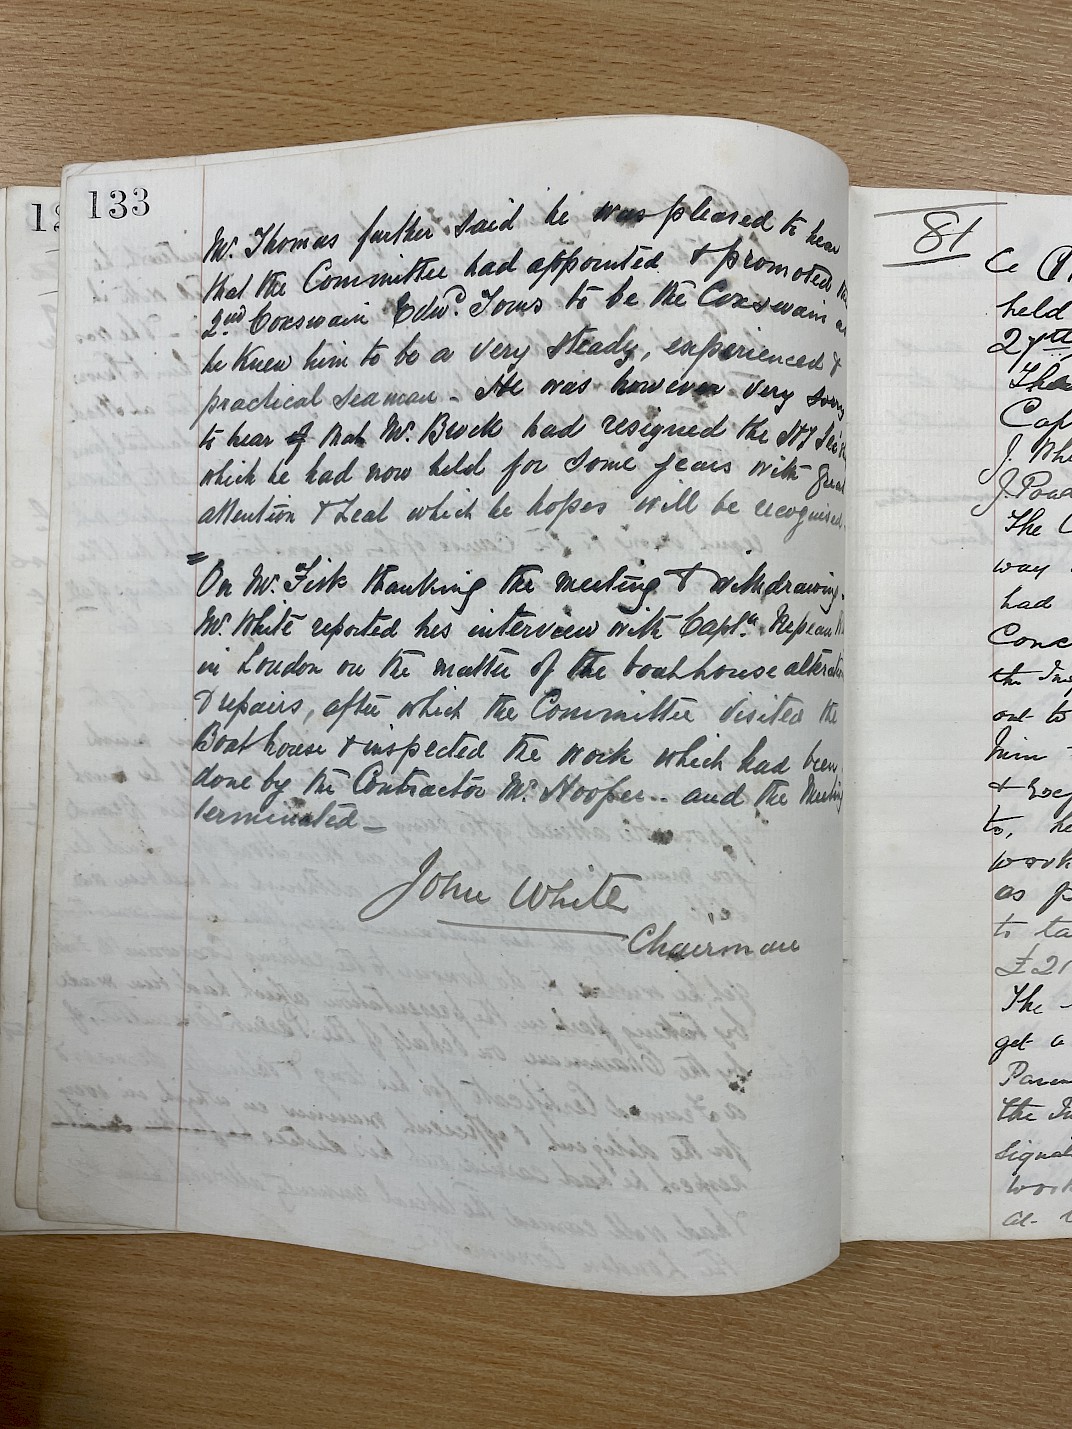 133
Mr. Thomas further said he was pleased to hear
that the Committee had appointed & promoted the
2nd Coxswain Edwd. Toms to be the Coxswain as
he knew him to be a very steady, experienced &
practical seaman - He was however very sorry
to hear of that Mr. Brock had resigned the
which he had now held for some years with great
attention & Zeal which he hopes will be recognised.
= On Mr. Fisk thanking the meeting & withdrawing.
Mr. White reported his interview with Captn. Nepean
in London on the matter of the boathouse alteration
& repairs, after which the Committee visited the
Boathouse & inspected the work which had been
done by the Contractor Mr. Hooper .. and the Meeting
terminated -
John White
Chairman
81
held
27th
Cap
J. Whi
The
way
had
Conc
the
out to
him
to, he
work
as p
to ta
£21
The
get a
the
signa
work
at